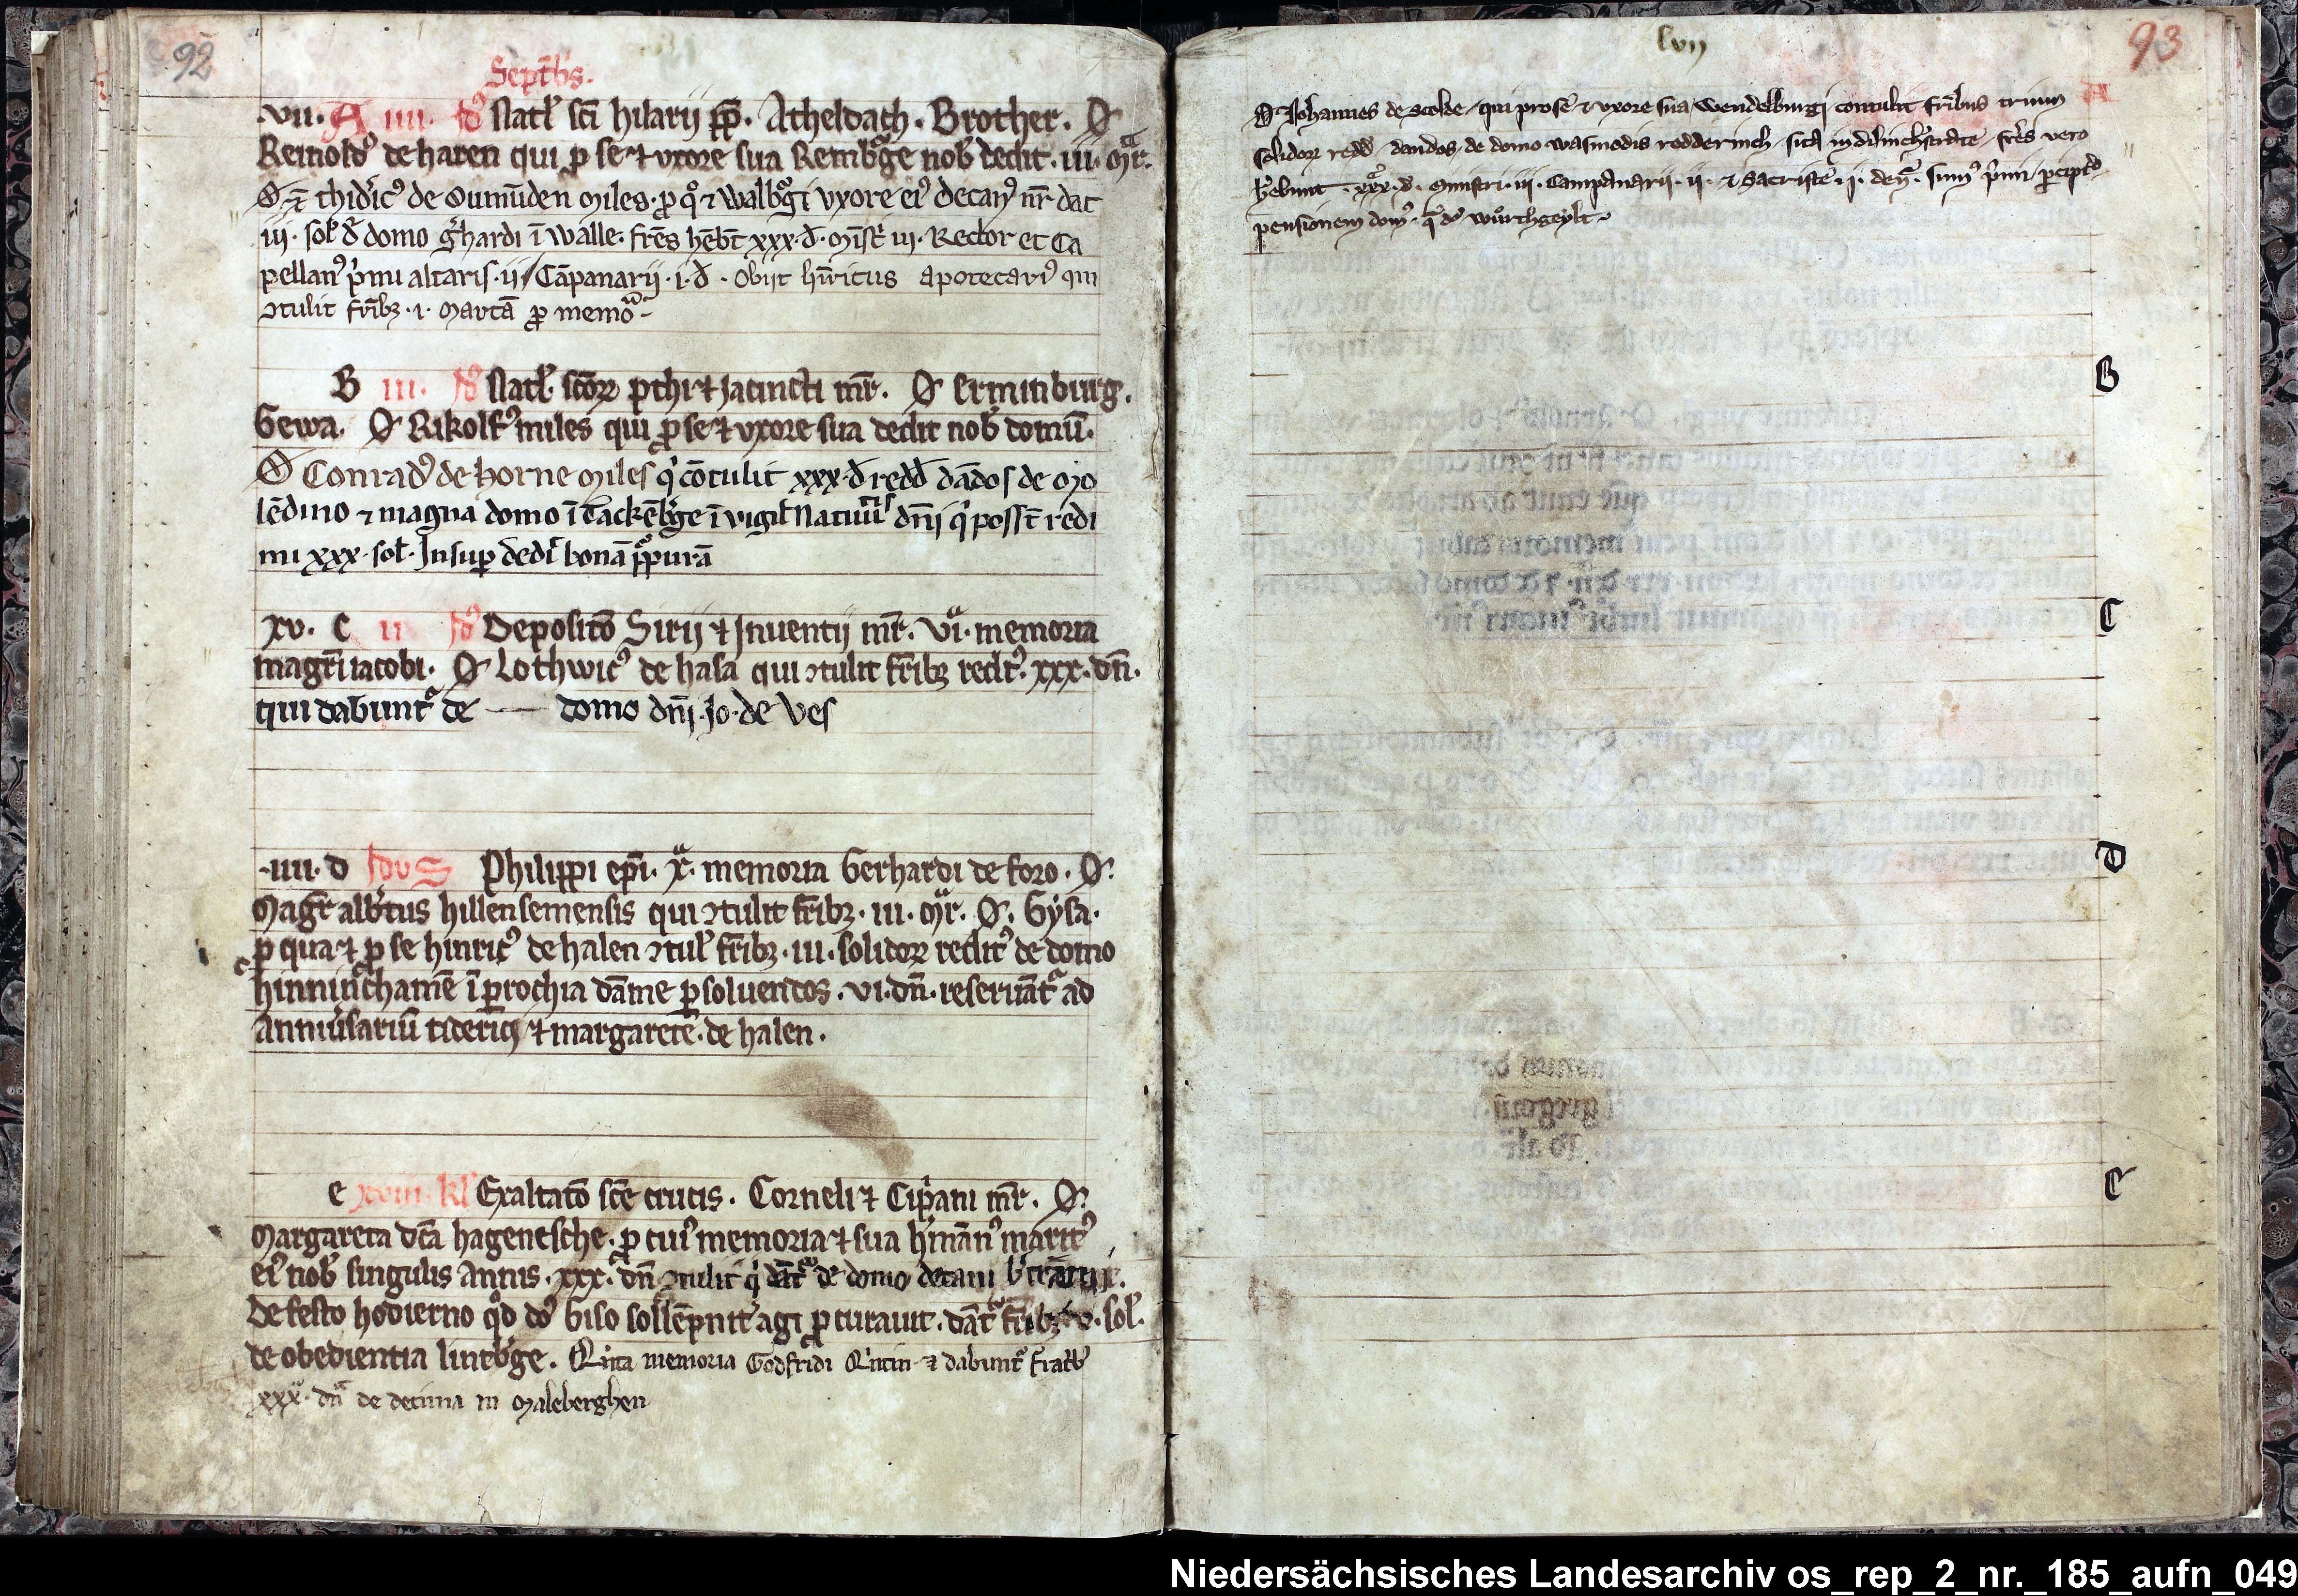 92
Septēbs.
vii. A iiii. Id' Natl' sci hilarij pp̄. Atheldach. Brother. O'
Reinold' de haren qui p se et uxore sua Remb'ge nob dedit. iii. mr̄.
O' thid'ic' de Dumūden miles. p q° et walb'gi uxore ei' decan' nr̄ dat
iij. sol' d' domo g'hardi ī walle. fr̄es hēbt xxx. d. mīst' iij. Rector et Ca
pellan' p'mi altaris. ij Cāpanarij. i. d. Obijt hīricus apotecari' qui
ɔtulit fr̄ibz. i. marcā p memo
B iii. Id' Natl' scōrz p'thi et Jacincti mr̄. O' Erminburg.
Gewa. O' Rikolf' miles qui p se et uxore sua dedit nob domū.
O' Conrad' de horne miles q' cōtulit xxx. d redd dādos de mo
lēdino et magna domo ī tackēb'ge ī vigil' Natiu dn̄i q' posst redi
mi xxx. sol. Insup dedit bonā p'purā
xv. C ii Id' Deposito Sirij et Juuentij mr̄. vi. memoria
magr̄i iacobi. O' Lothwic' de hasa qui ɔtulit fr̄ibz redit'. xxx. dn̄.
qui dabunt' de — domo dn̄i. Jo. de Ves
iiii. d IduS Philippi ep̄i. x. memoria Gerhardi de foro. O'
Magr̄ alb'tus hillensemensis qui ɔtulit fr̄ibz. iii. mr̄. O'. Gysa.
p qua et p se hinric' de halen ɔtul' fr̄ibz. iii. solidorz redit' de domo
hinninchame ī prochia dāme psoluendos. vi. dn̄. reseruāt' ad
Anniu'sariū tiderici et margarete. de halen.
e xviii. kl' Exaltatō scē crucis. Corneli et Cip'ani mr̄. O'
Margareta dc̄a hagenesche. p cui' memoria et sua h'mānn' marit'
ei' nob' singulis Annis. xxx. dn̄ ɔtulit q' dāt' de domo decani
De festo hodierno qd do' Giso sollēpnit' agi pcurauit. dāt' fr̄ibz v. sol'.
de obedientia lintb'ge. Q'nta memoria Godfridi Q'ntin et dabunt' fratb'
xxx. dn̄ de decima in Maleberghen
lvij
93
A
O' Johannes de Scelde qui pro se et uxore sua Wendelburgi contulit fr̄ibus trium
solidorz redd dandos de domo wasmodis redderinch sita in dilinchstrate fr̄es vero
h'ebunt. xxx. d. ministri. iij. Campanarij. ij. et Sacriste. ij. den. p'mi
pensionem dom' wůrthgeylt
B
C
D
E
Niedersächsisches Landesarchiv os_rep_2_nr._185_aufn_049